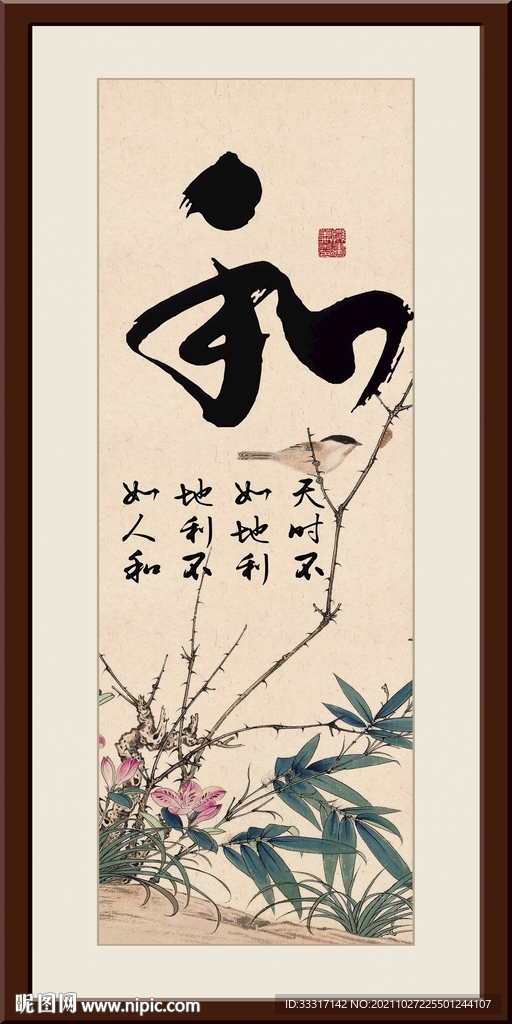 和
天时不
如地利
地利不
如人和
昵图网 www.nipic.com
ID:33317142 NO:20211027225501244107